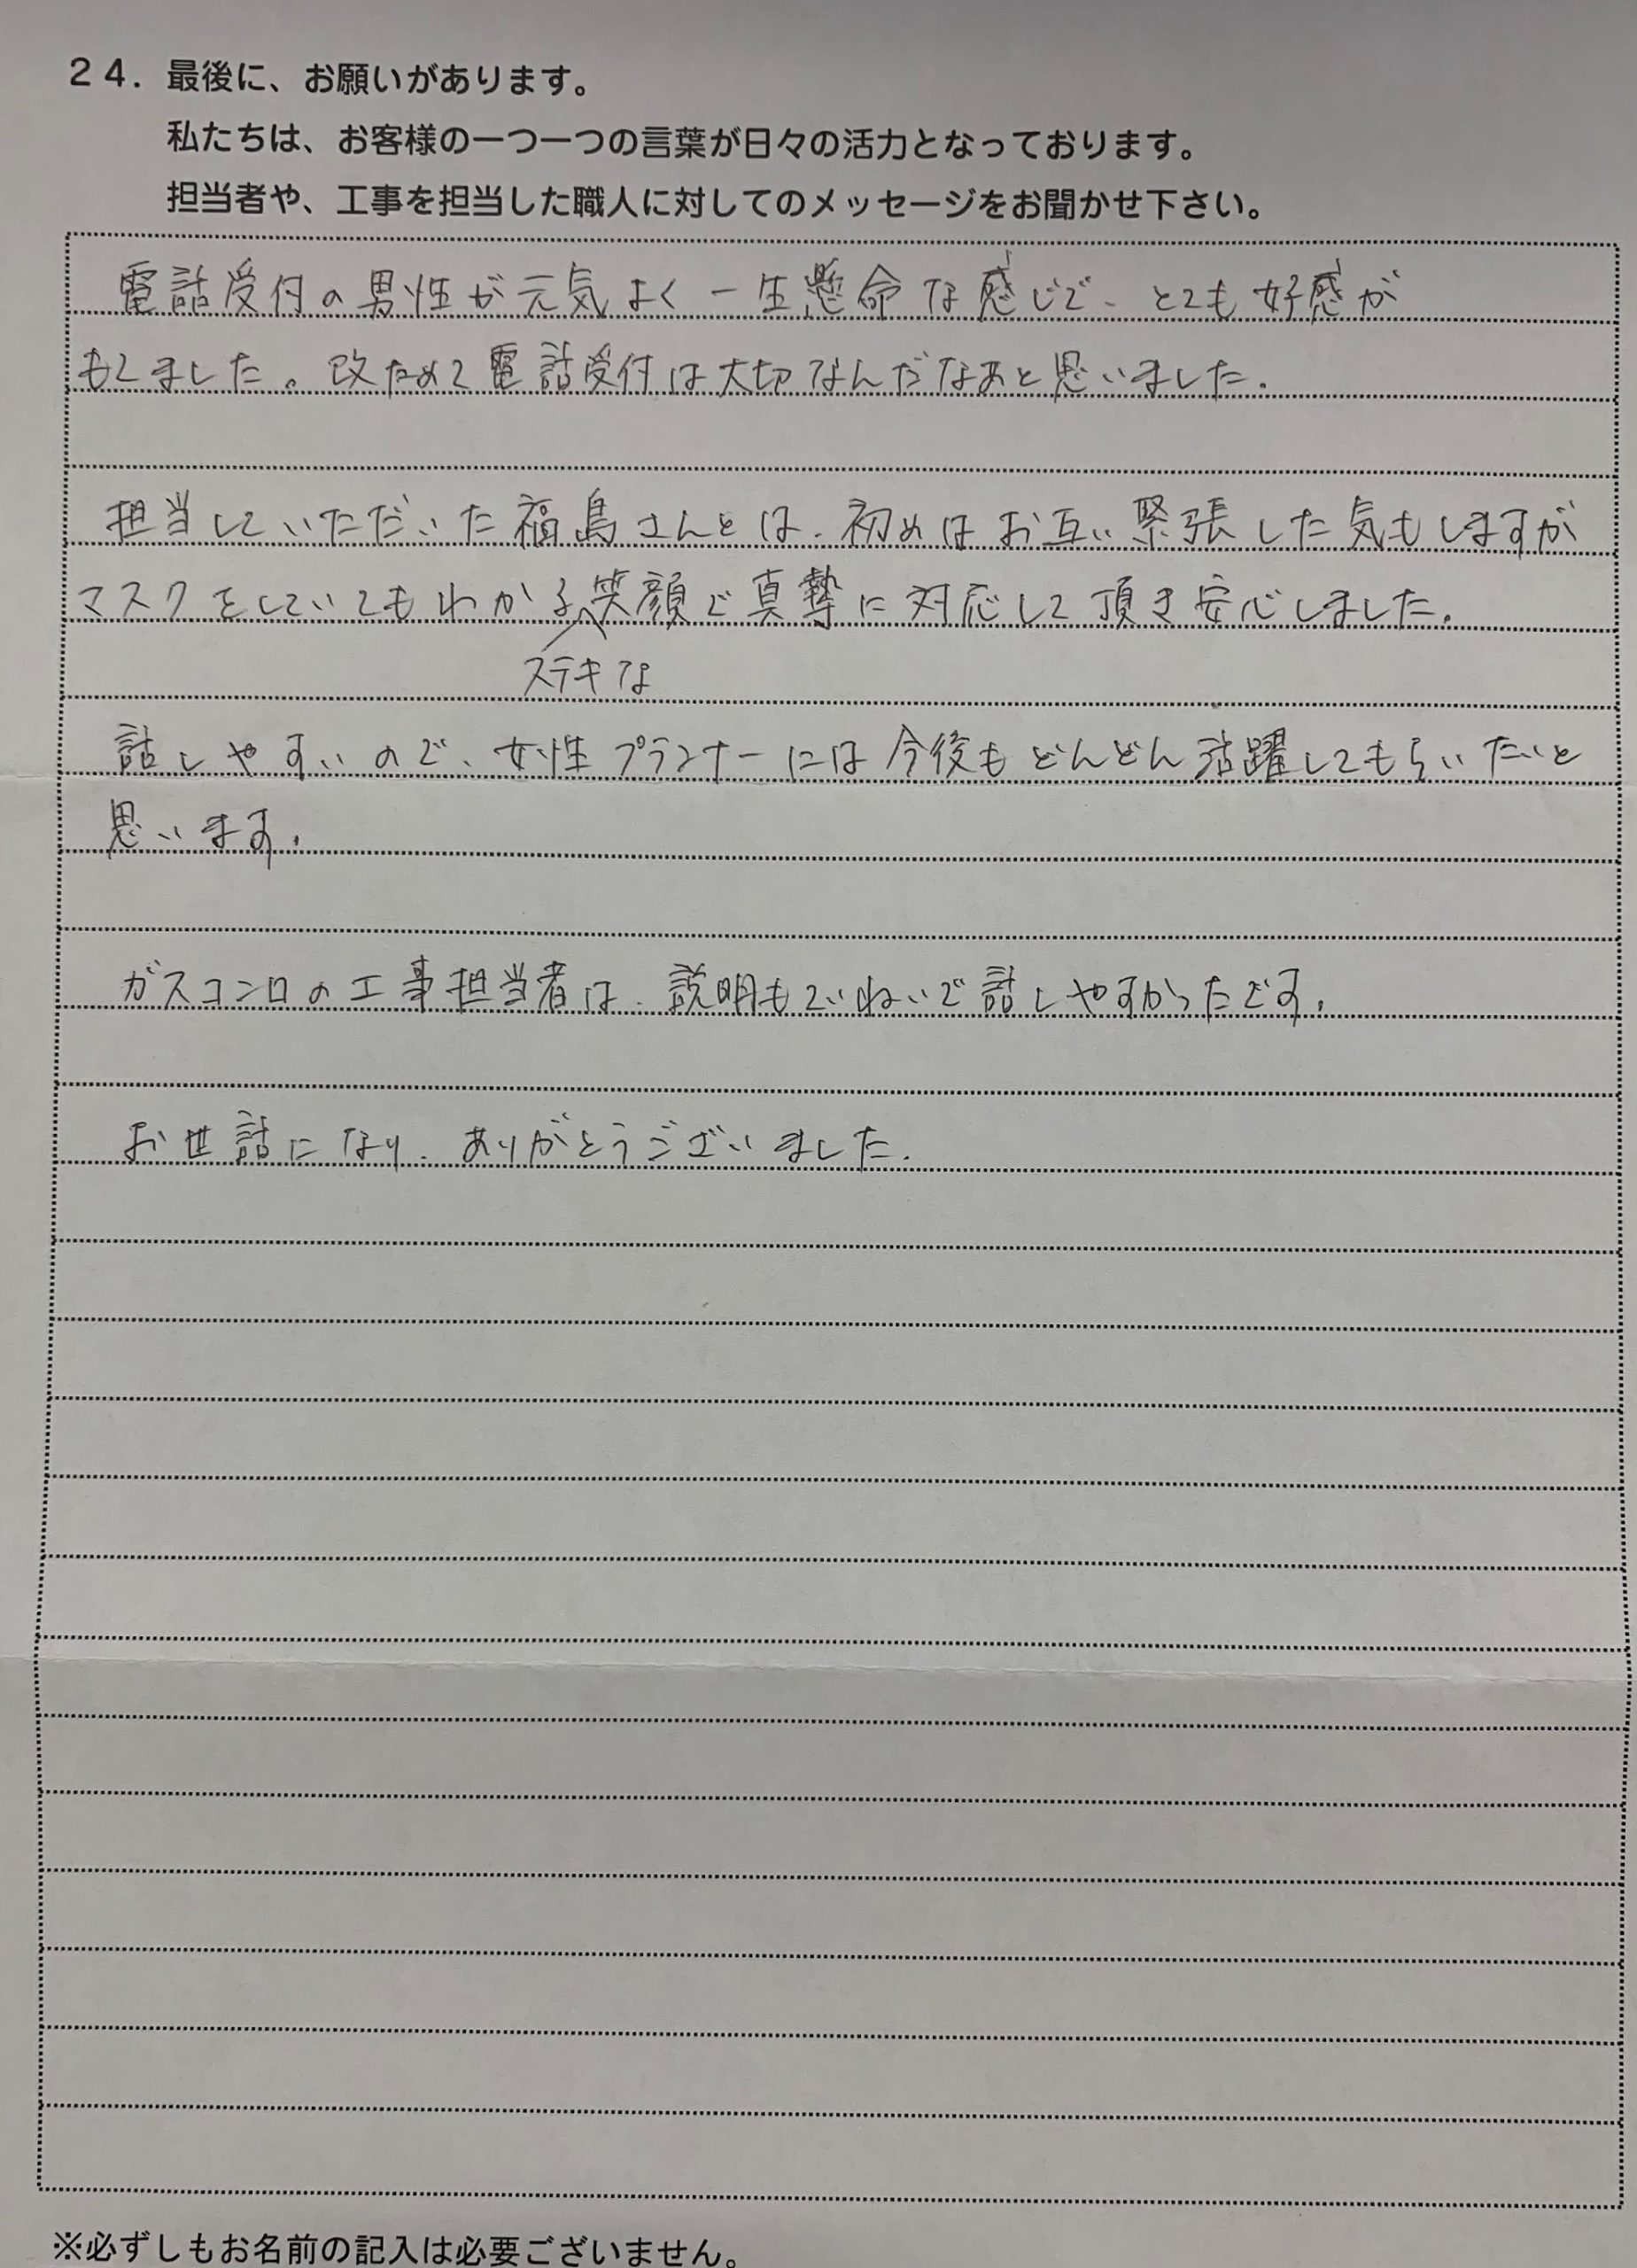 ２４．最後に、お願いがあります。
私たちは、お客様の一つ一つの言葉が日々の活力となっております。
担当者や、工事を担当した職人に対してのメッセージをお聞かせ下さい。
電話受付の男性が元気よく一生懸命な感じで、とても好感が
もてました。改ためて電話受付は大切なんだなあと思いました。
担当していただいた福島さんとは、初めはお互い緊張した気もしますが
マスクをしていてもわかる笑顔で真摯に対応して頂き安心しました。
ステキな
話しやすいので、女性プランナーには今後もどんどん活躍してもらいたいと
思います。
ガスコンロの工事担当者は、説明もていねいで話しやすかったです。
お世話になり、ありがとうございました。
※必ずしもお名前の記入は必要ございません。